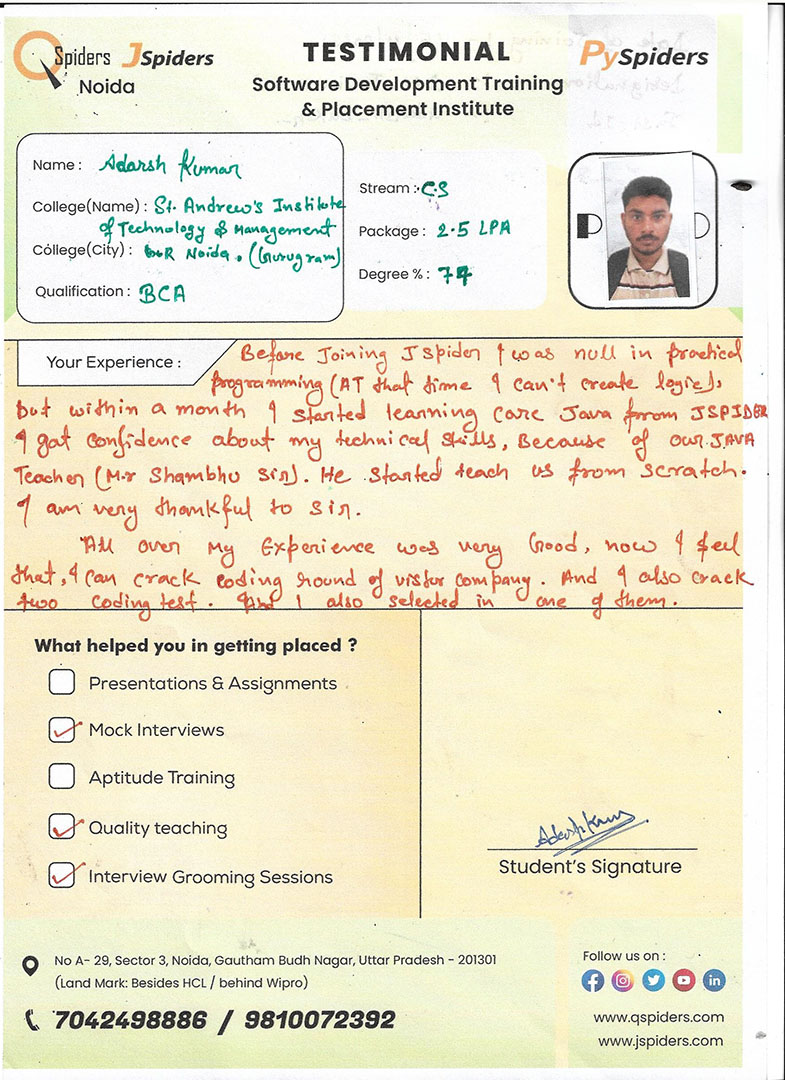 QSpiders JSpiders
Noida
TESTIMONIAL
Software Development Training
& Placement Institute
PySpiders
Name : Adarsh Kumar
College(Name) : St. Andrew's Institute
of Technology & Management
College(City) : Noida. (Gurugram)
Qualification : BCA
Stream : C.S
Package : 2.5 LPA
Degree % : 74
Your Experience :
Before Joining JSpider I was null in practical
programming (AT that time I can't create logic).
But within a month I started learning core Java from JSPIDER
I got confidence about my technical skills, Because of our JAVA
Teacher (M.r Shambhu Sir). He started teach us from scratch.
I am very thankful to sir.
All over my Experience was very Good, now I feel
that, I can crack coding round of company. And I also crack
two coding test. And I also selected in one of them.
What helped you in getting placed ?
Presentations & Assignments
Mock Interviews
Aptitude Training
Quality teaching
Interview Grooming Sessions
Student's Signature
No A- 29, Sector 3, Noida, Gautham Budh Nagar, Uttar Pradesh - 201301
(Land Mark: Besides HCL / behind Wipro)
7042498886 / 9810072392
Follow us on :
www.qspiders.com
www.jspiders.com